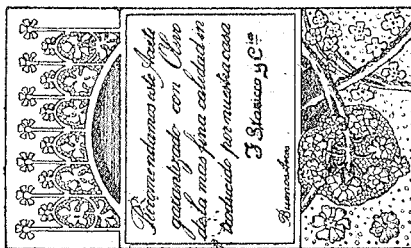 Recomendamos este Aceite
garantizado con Olivo
de la mas fina calidad in
troducido por nuestra casa
F. Staricco y Cia
Buenos Aires